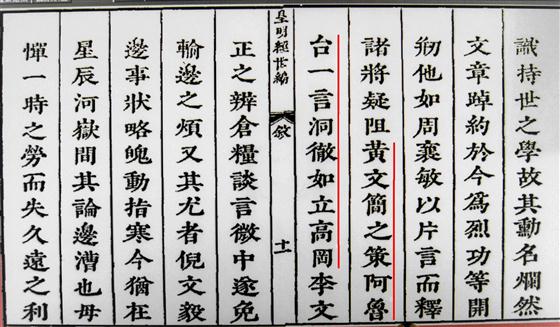 識持世之學故其勳名爛然
文章踔約於今爲烈功等開
剙他如周襄敏以片言而釋
諸將疑阻黃文簡之策阿魯
台一言洞徹如立高岡李文
皇明經世編
敘
十一
正之辨倉糧談言微中遂免
輸邊之煩又其尤者倪文毅
邊事狀略魄動指寒今猶在
星辰河嶽間其論邊漕也毋
憚一時之勞而失久遠之利